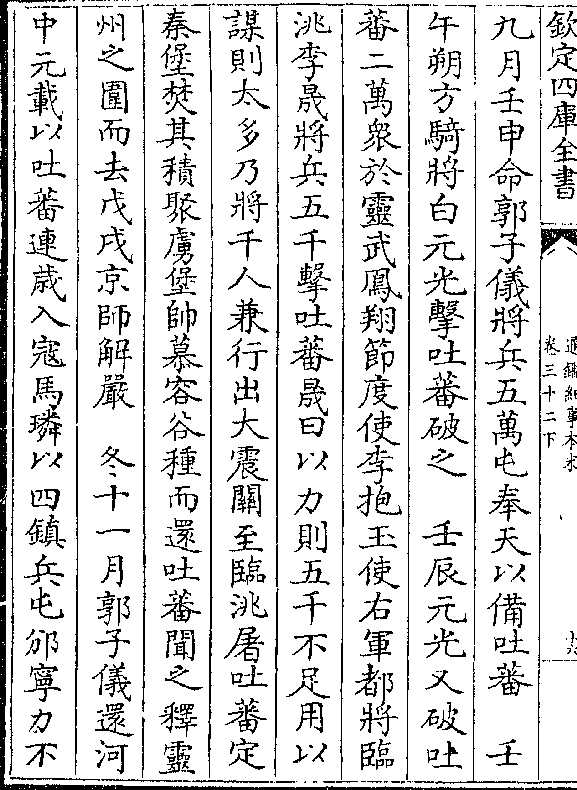 欽定四庫全書
通鑑紀事本末
卷三十二下
九月壬申命郭子儀將兵五萬屯奉天以備吐蕃　壬
午朔方騎將白元光擊吐蕃破之　壬辰元光又破吐
蕃二萬衆於靈武鳳翔節度使李抱玉使右軍都將臨
洮李晟將兵五千擊吐蕃晟曰以力則五千不足用以
謀則太多乃將千人兼行出大震關至臨洮屠吐蕃定
秦堡焚其積聚虜堡帥慕容谷種而還吐蕃聞之釋靈
州之圍而去戊戌京師解嚴　冬十一月郭子儀還河
中元載以吐蕃連歲入寇馬璘以四鎮兵屯邠寧力不